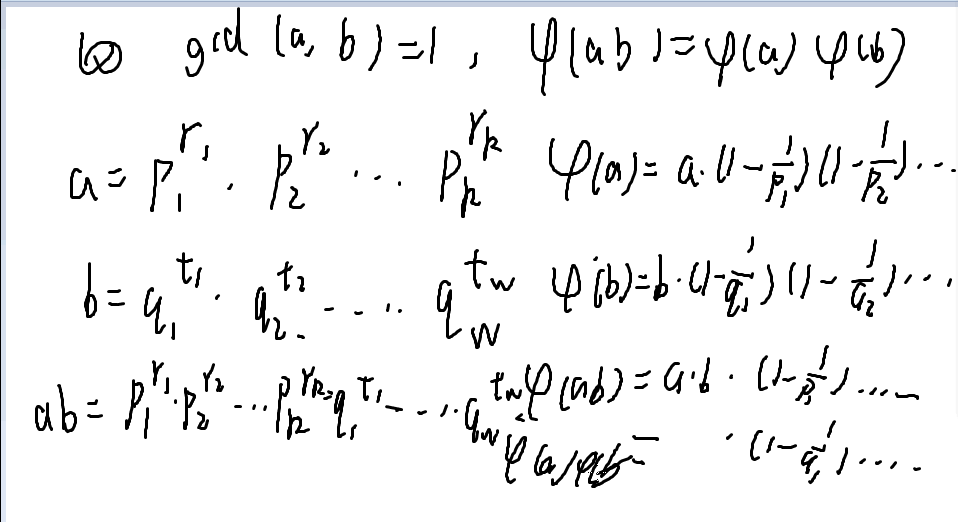 ⑥ gcd (a, b) = 1 , φ(ab) = φ(a) φ(b)
a = p₁^r₁ · p₂^r₂ ... p_k^r_k φ(a) = a·(1-1/p₁)(1-1/p₂)...
b = q₁^t₁ · q₂^t₂ ... q_w^t_w φ(b) = b·(1-1/q₁)(1-1/q₂)...
ab = p₁^r₁·p₂^r₂...p_k^r_k·q₁^t₁...q_w^t_w φ(ab) = a·b·(1-1/p₁)....
φ(a)φ(b) = ·(1-1/q₁)....